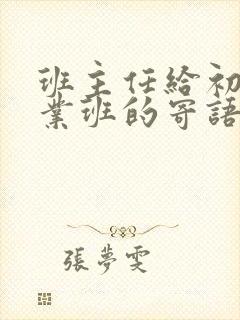 班主任给初
業班的寄語
張夢雯